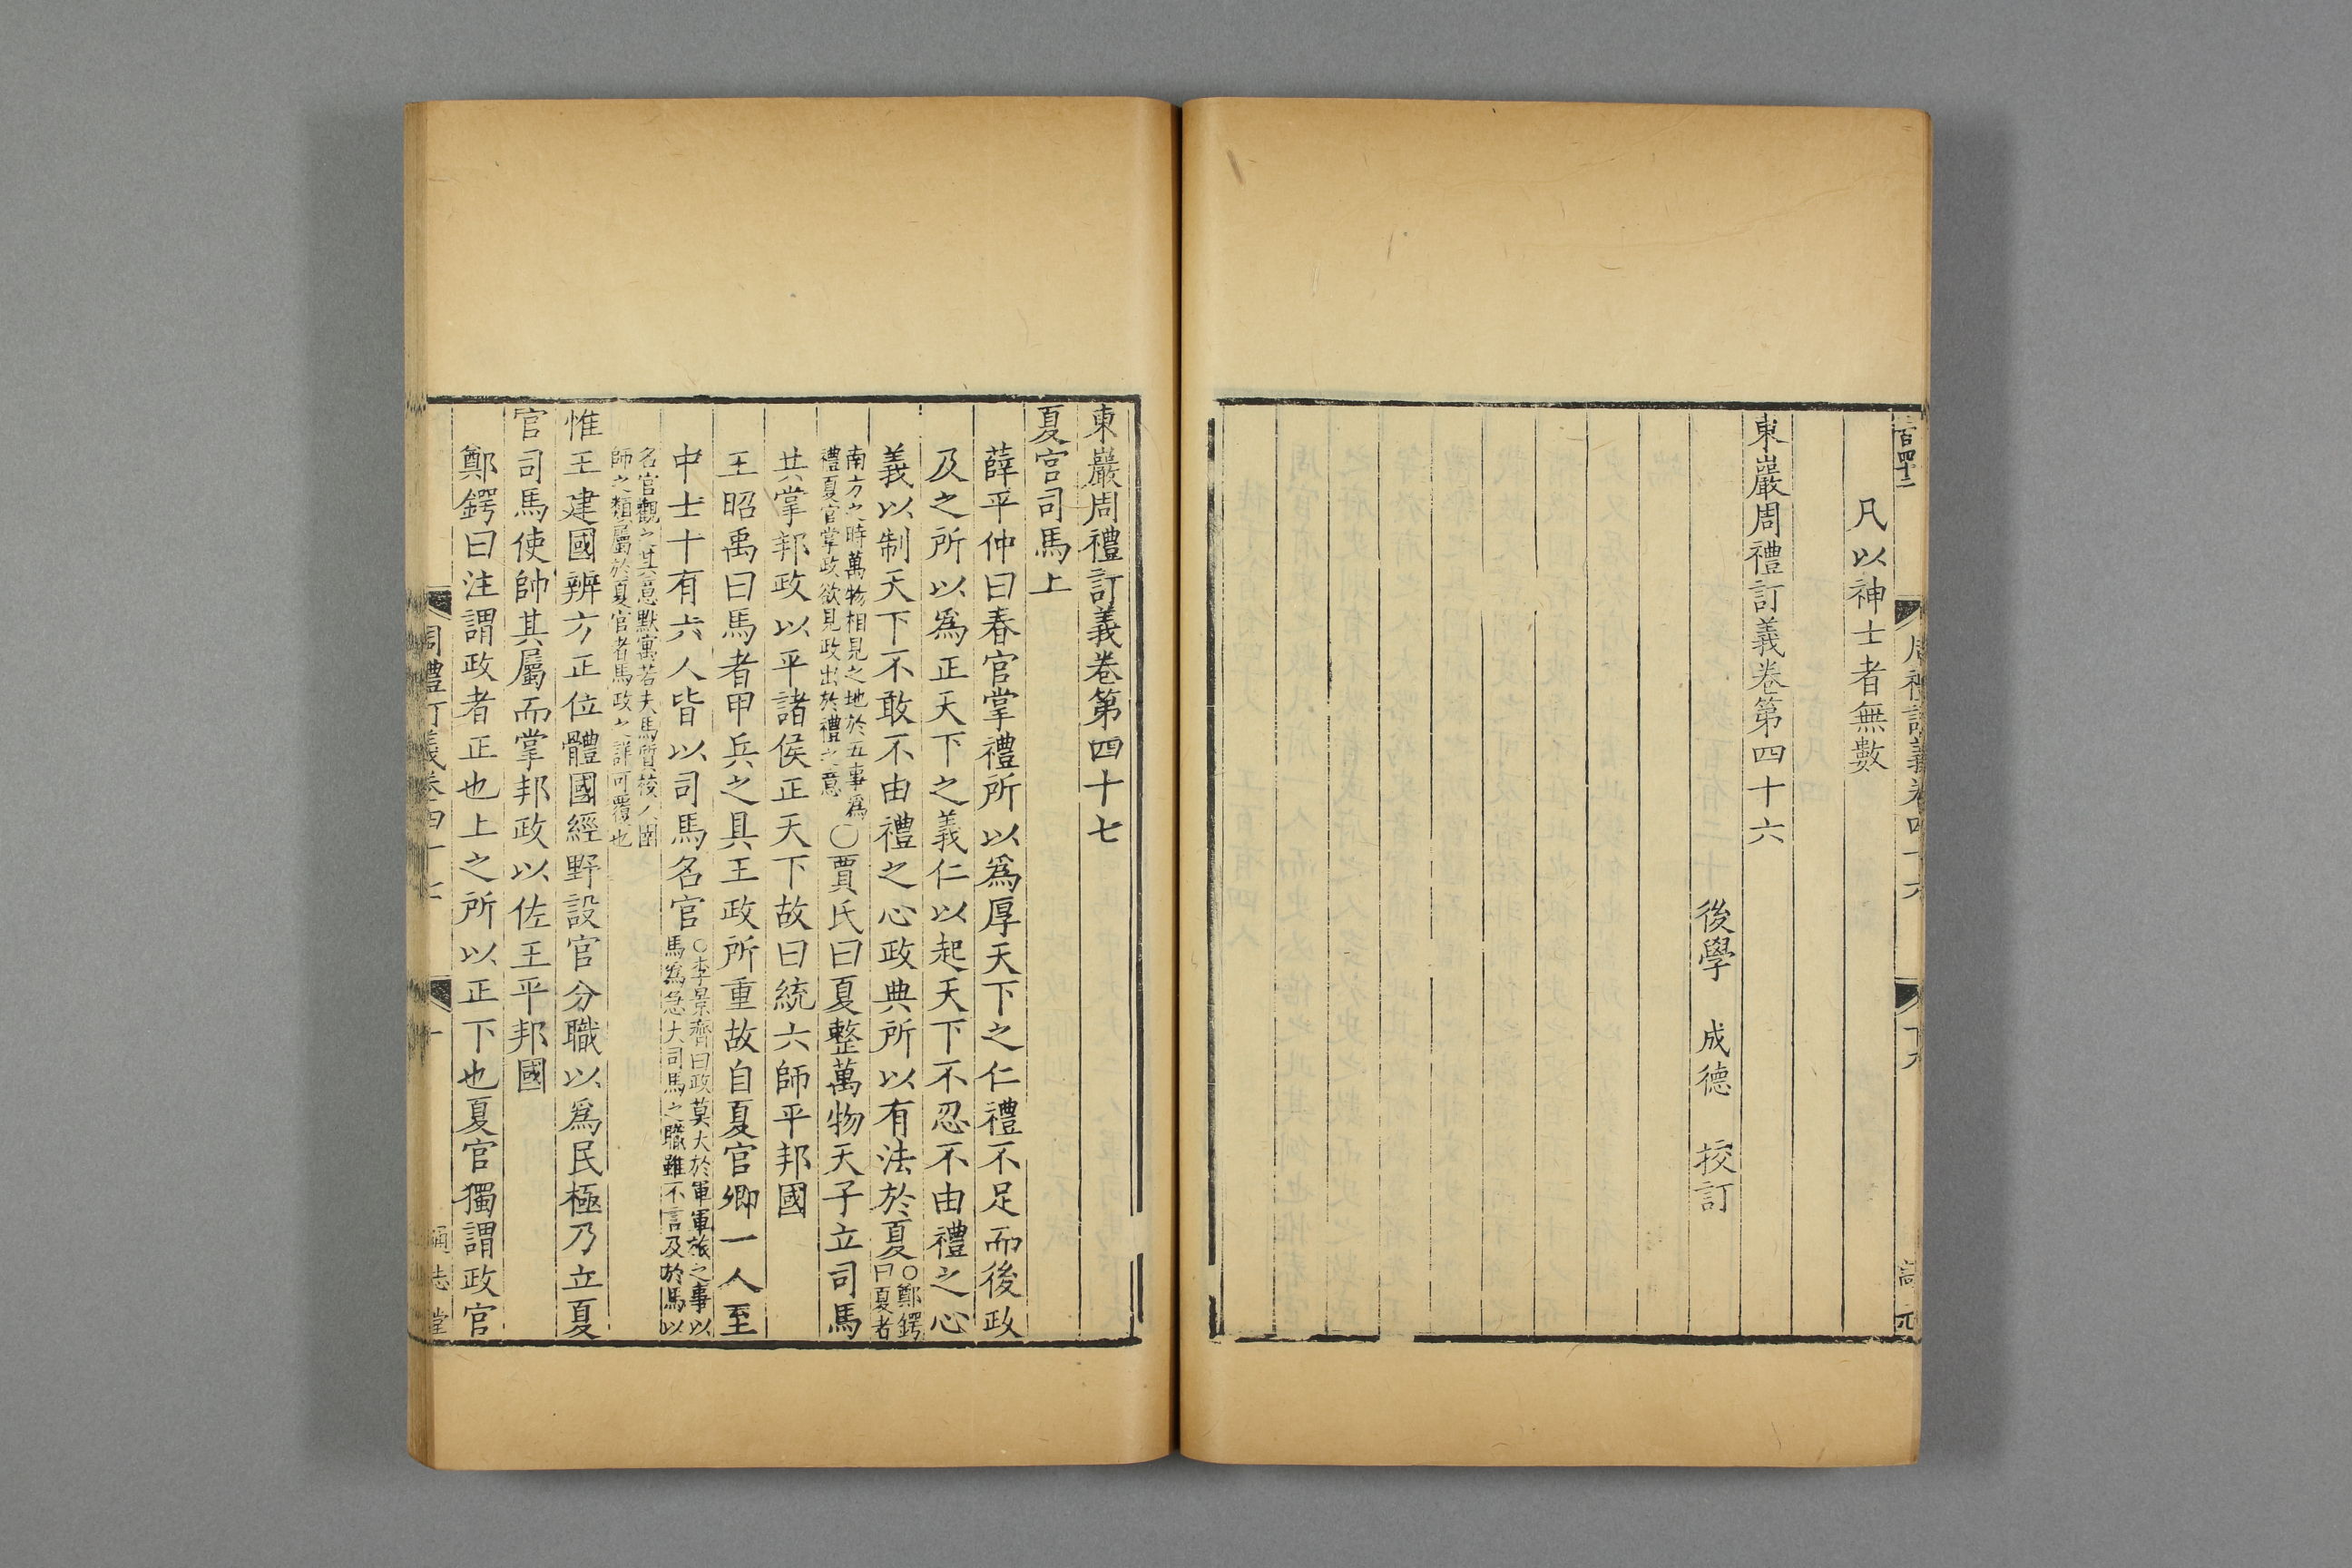 凡以神士者無數
東巖周禮訂義卷第四十六
後學 成德 挍訂
東巖周禮訂義卷第四十七
夏官司馬上
薛平仲曰春官掌禮所以爲厚天下之仁禮不足而後政
及之所以爲正天下之義仁以起天下不忍不由禮之心
義以制天下不敢不由禮之心政典所以有法於夏
○鄭鍔
曰夏者
南方之時萬物相見之地於五事爲
禮夏官掌政欲見政出於禮之意
○賈氏曰夏整萬物天子立司馬
共掌邦政以平諸侯正天下故曰統六師平邦國
王昭禹曰馬者甲兵之具王政所重故自夏官卿一人至
中士十有六人皆以司馬名官
○李景齊曰政莫大於軍軍旅之事以
馬爲急大司馬之職雖不言及於馬以
名官觀之其意默寓若夫馬質校人圉
師之類屬於夏官者馬政之詳可覆也
惟王建國辨方正位體國經野設官分職以爲民極乃立夏
官司馬使帥其屬而掌邦政以佐王平邦國
鄭鍔曰注謂政者正也上之所以正下也夏官獨謂政官
周禮訂義卷四十七
通志堂